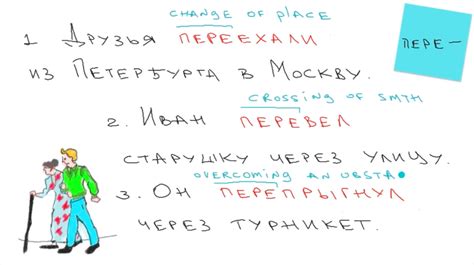 CHANGE OF PLACE
1 ДРУЗЬЯ ПЕРЕЕХАЛИ
ПЕРЕ—
ИЗ ПЕТЕРБУРГА В МОСКВУ.
CROSSING OF SMTH
2. ИВАН ПЕРЕВЕЛ
СТАРУШКУ ЧЕРЕЗ УЛИЦУ.
OVERCOMING AN OBSTA
3. ОН ПЕРЕПРЫГНУЛ
ЧЕРЕЗ ТУРНИКЕТ.